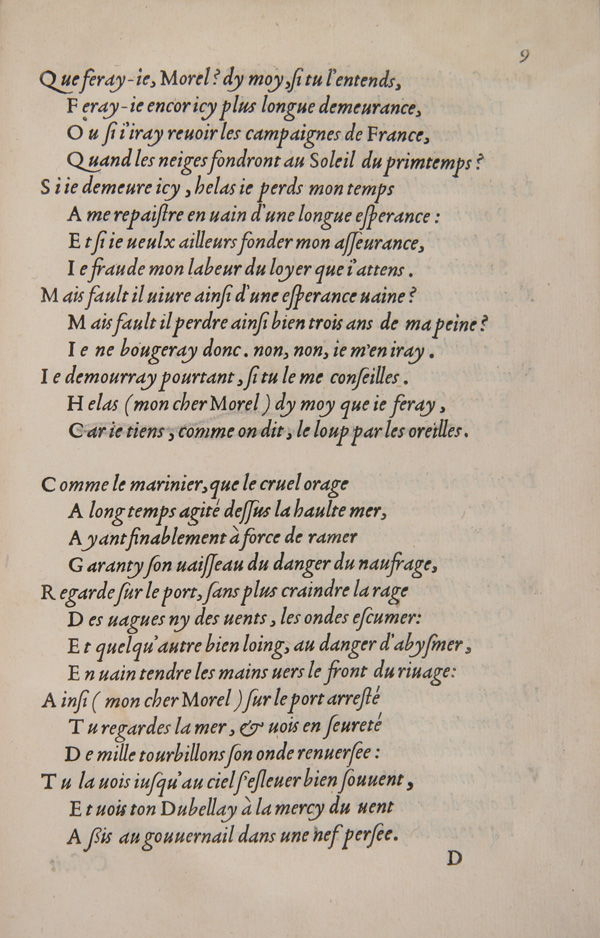 9
Que feray-ie, Morel? dy moy, ſi tu l'entends,
Feray-ie encor icy plus longue demeurance,
Ou ſi i'iray reuoir les campaignes de France,
Quand les neiges fondront au Soleil du primtemps?
Si ie demeure icy, helas ie perds mon temps
A me repaiſtre en uain d'une longue eſperance:
Et ſi ie ueulx ailleurs fonder mon aſſeurance,
Ie fraude mon labeur du loyer que i'attens.
Mais fault il uiure ainſi d'une eſperance uaine?
Mais fault il perdre ainſi bien trois ans de ma peine?
Ie ne bougeray donc. non, non, ie m'en iray.
Ie demourray pourtant, ſi tu le me conſeilles.
Helas (mon cher Morel) dy moy que ie feray,
Car ie tiens, comme on dit, le loup par les oreilles.
Comme le marinier, que le cruel orage
A long temps agité deſſus la haulte mer,
Ayant finablement à force de ramer
Garanty ſon uaiſſeau du danger du naufrage,
Regarde ſur le port, ſans plus craindre la rage
Des uagues ny des uents, les ondes eſcumer:
Et quelqu'autre bien loing, au danger d'abyſmer,
En uain tendre les mains uers le front du riuage:
Ainſi (mon cher Morel) ſur le port arreſté
Tu regardes la mer, & uois en ſeureté
De mille tourbillons ſon onde renuerſee:
Tu la uois iuſqu'au ciel ſ'eſleuer bien ſouuent,
Et uois ton Dubellay à la mercy du uent
Aßis au gouuernail dans une nef perſee.
D